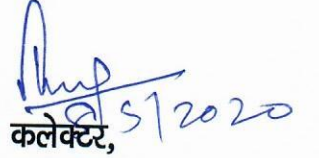 5/2020
कलेक्टर,